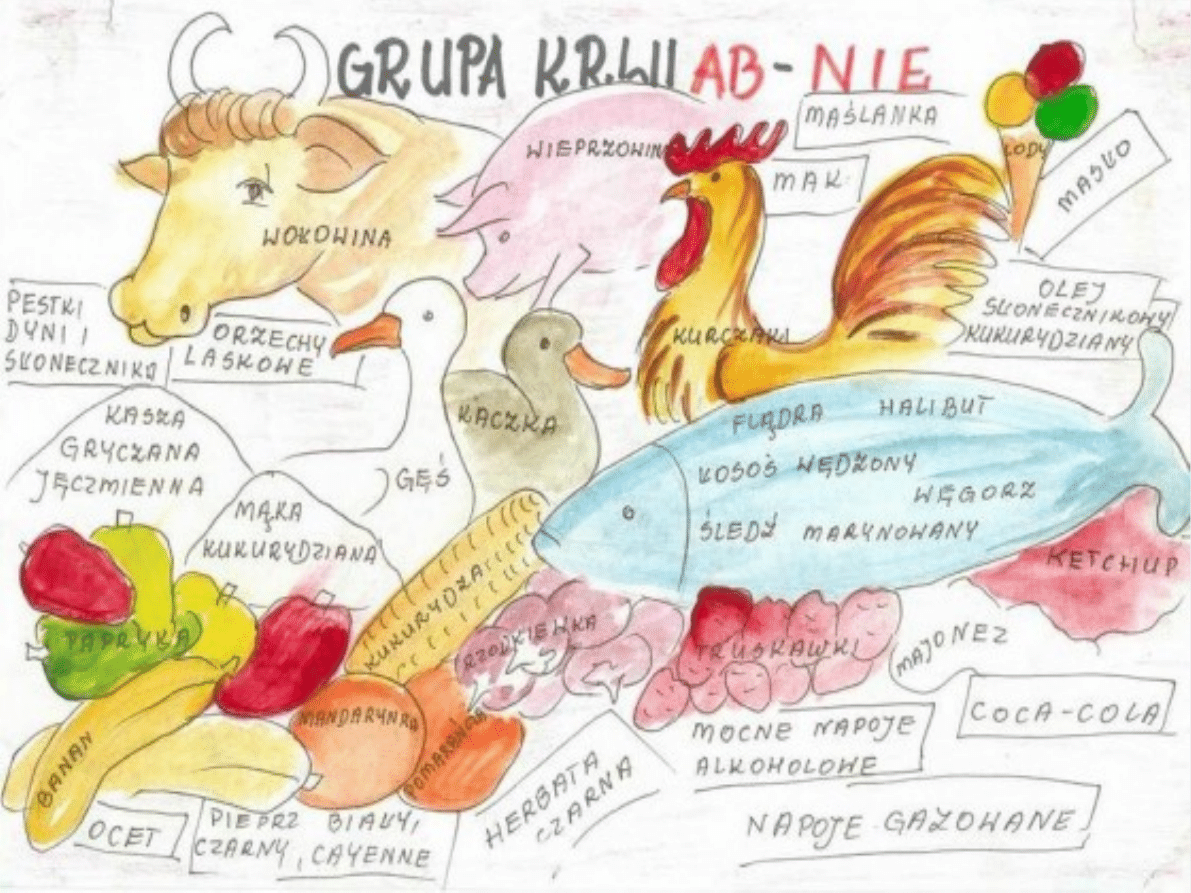 GRUPA KRWI AB - NIE
MAŚLANKA
LODY
MASŁO
WIEPRZOWINA
MAK
WOŁOWINA
PESTKI
DYNI I
SŁONECZNIKA
ORZECHY
LASKOWE
KURCZAKI
OLEJ
SŁONECZNIKOWY
KUKURYDZIANY
KASZA
GRYCZANA
JĘCZMIENNA
GĘŚ
KACZKA
FLĄDRA HALIBUT
ŁOSOŚ WĘDZONY
WĘGORZ
ŚLEDŹ MARYNOWANY
MĄKA
KUKURYDZIANA
KETCHUP
PAPRYKA
KUKURYDZA
RZODKIEWKA
TRUSKAWKI
MAJONEZ
BANAN
MANDARYNKA
POMARAŃCZA
HERBATA
CZARNA
MOCNE NAPOJE
ALKOHOLOWE
COCA-COLA
OCET
PIEPRZ BIAŁY,
CZARNY, CAYENNE
NAPOJE GAZOWANE